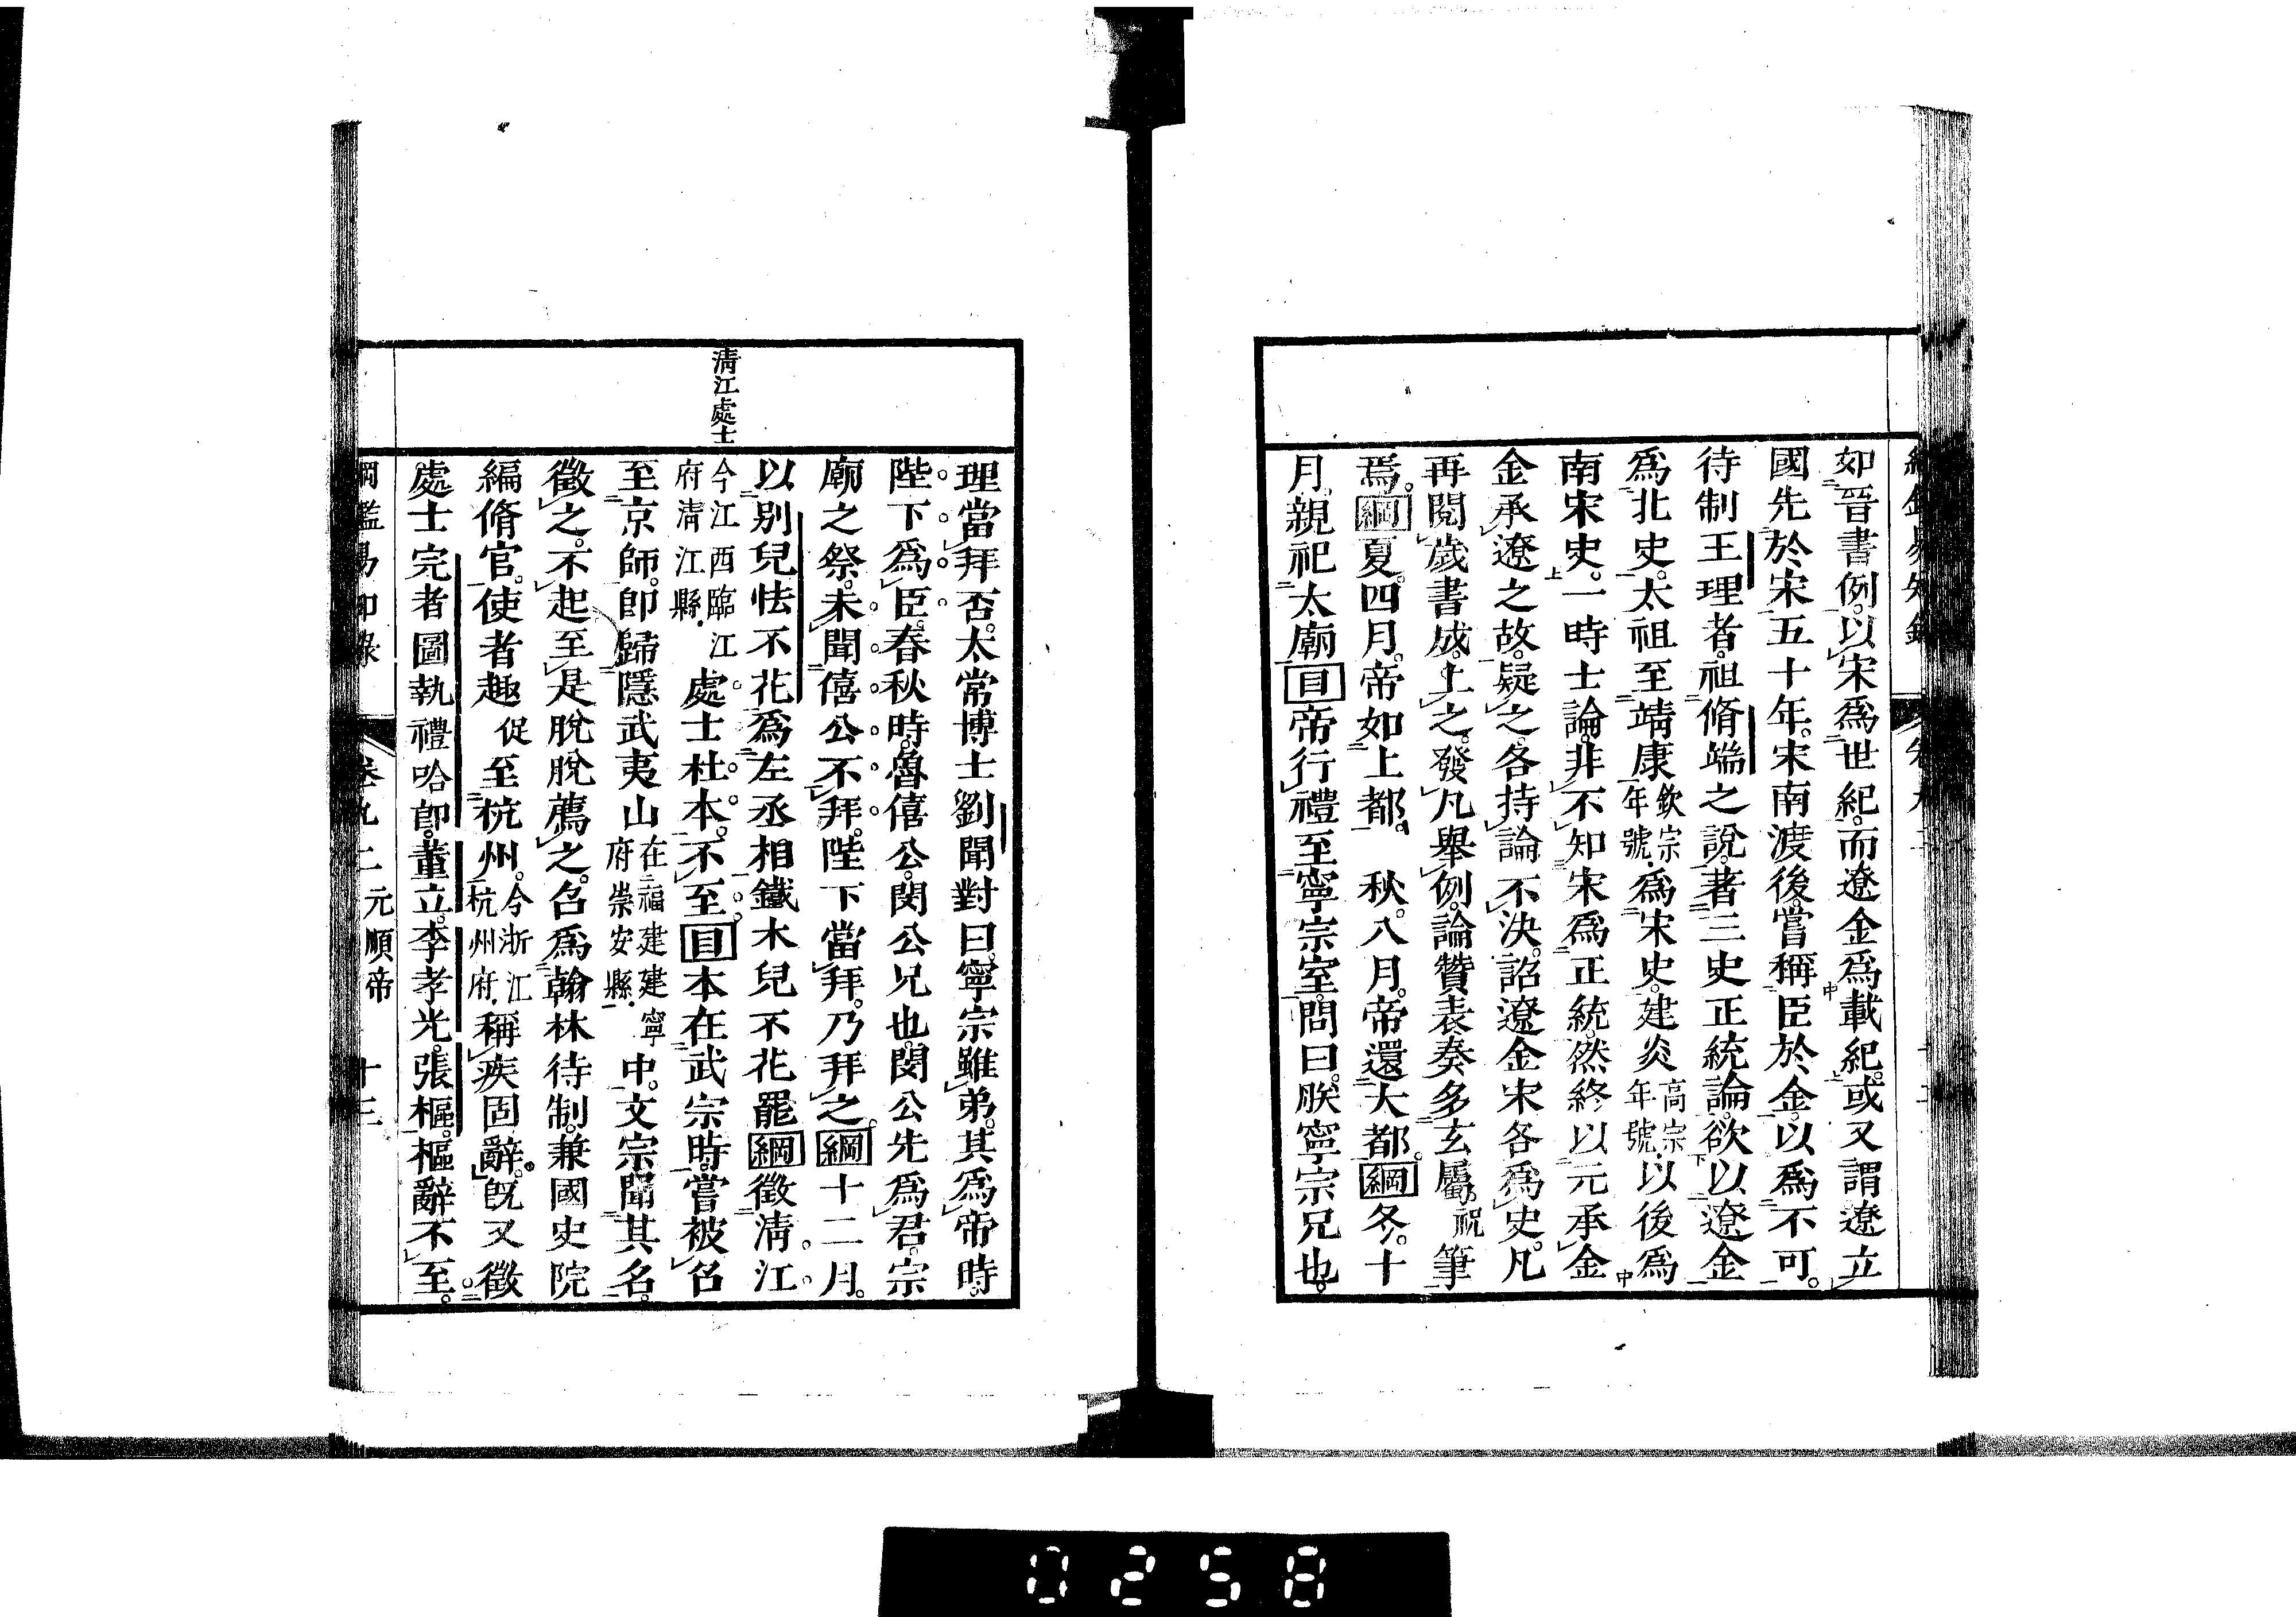 如晉書例。以宋爲世紀。而遼金爲載紀。或又謂遼立
國先於宋五十年。宋南渡後。嘗稱臣於金。以爲不可。
待制王理者。祖脩端之說。著三史正統論。欲以遼金
爲北史。太祖至靖康欽宗年號。爲宋史。建炎高宗年號。以後爲
南宋史。一時士論。非不知宋爲正統。然終以元承金
金承遼之故。疑之。各持論不決。詔遼金宋各爲史。凡
再閱歲書成。上之。發凡舉例。論贊表奏多玄屬。祝筆
焉。綱夏。四月。帝如上都。 秋。八月。帝還大都。綱冬。十
月。親祀太廟目帝行禮至寧宗室。問曰。朕寧宗兄也。
清江處士
理當拜否。太常博士劉聞對曰。寧宗雖弟。其爲帝時。
陛下爲臣。春秋時。魯僖公。閔公兄也。閔公先爲君。宗
廟之祭。未聞僖公不拜。陛下當拜。乃拜之。綱十二月。
以別兒怯不花爲左丞相。鐵木兒不花罷綱徵清江
今江西臨江府清江縣。處士杜本。不至。目本在武宗時。嘗被召
至京師。卽歸隱武夷山在福建建寧府崇安縣中。文宗聞其名。
徵之。不起。至是脫脫薦之。召爲翰林待制。兼國史院
編脩官。使者趣促至杭州。今浙江杭州府。稱疾固辭。旣又徵
處士完者圖執禮哈郎。董立。李孝光。張樞。樞辭不至。
卷九二 元順帝 十三
0258